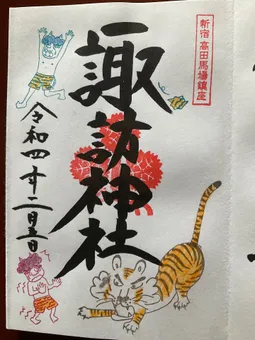 新宿高田馬場鎮座
諏訪神社
令和四年二月三日